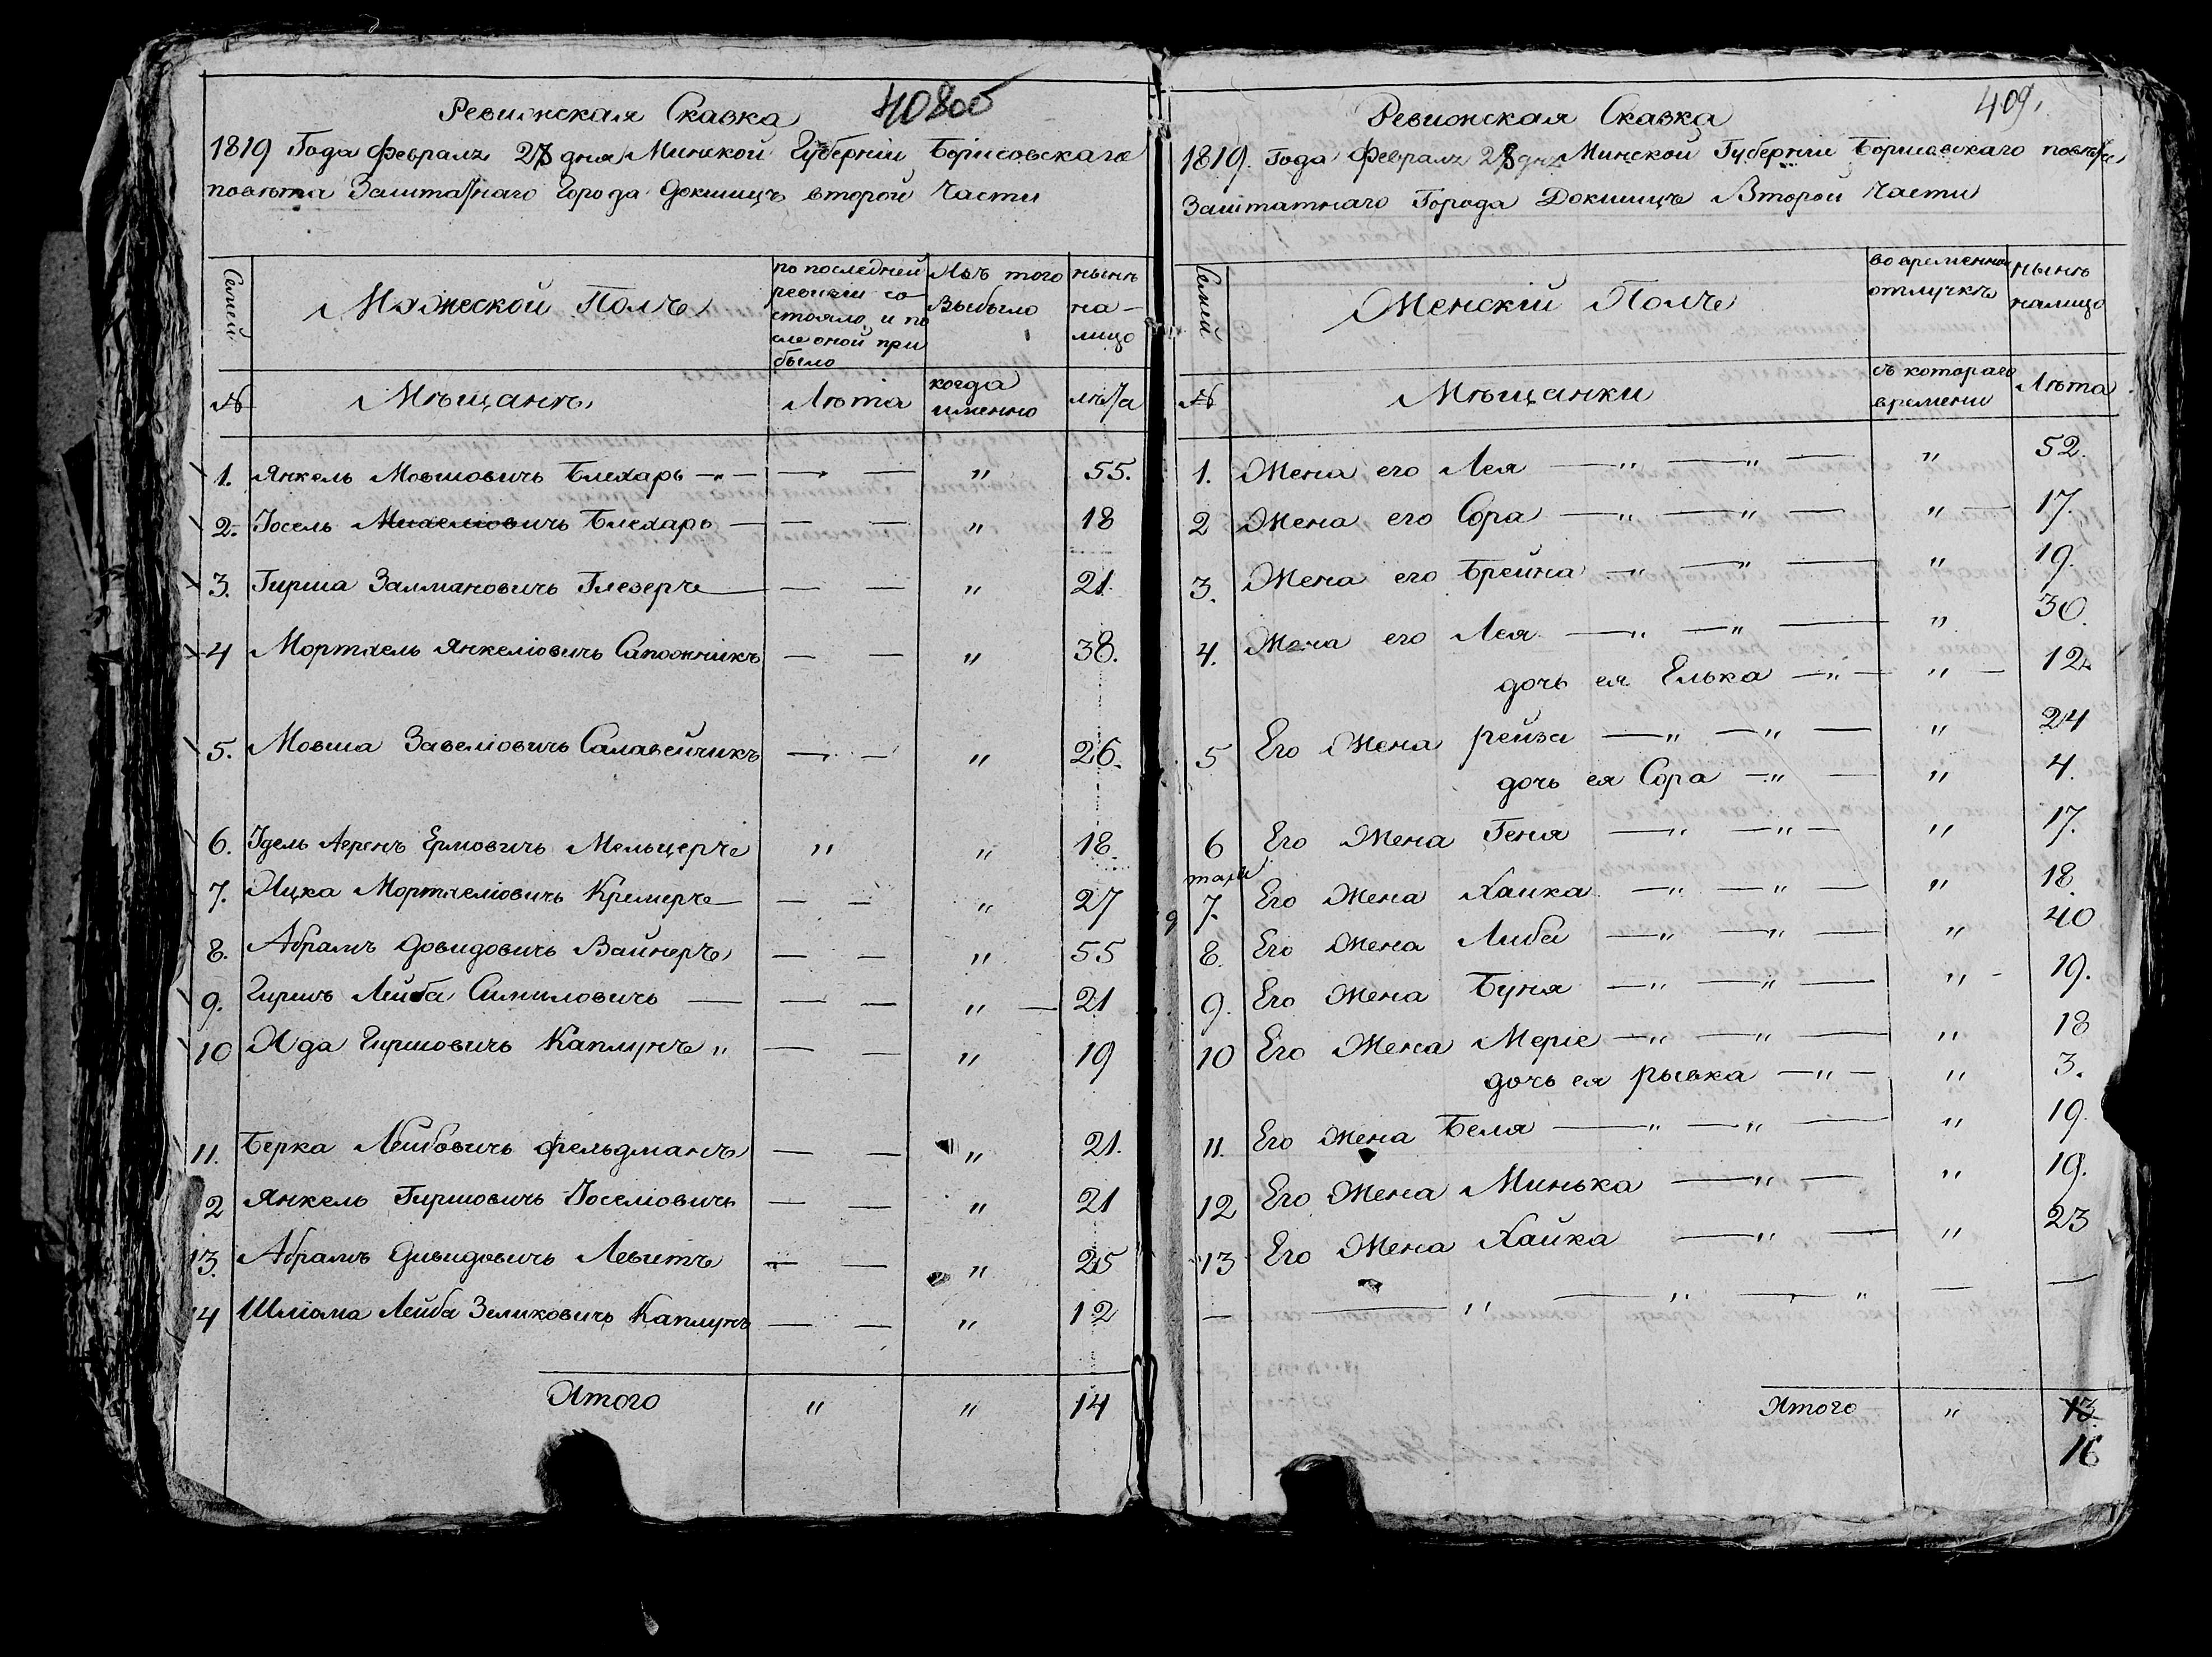 Ревижская Сказка 408об
1819 Года Февраля 28 дня Минской Губерніи Борисовскаго
повѣта Заштатнаго Города Докшицъ второй Части
Семей
Мужеской Полъ
по последней ревизіи состояло, и после оной прибыло
Изъ того выбыло
нынѣ на-лицо
№ Мѣщанѣ Лѣта когда именно лѣта
1. Янкель Мовшовичь Блехарь — — " 55.
2. Іосель Михелiовичь Блехарь — — " 18
3. Гирша Залмановичь Глезеръ — — " 21.
4 Мортхель Янкеліовичь Сапожникъ — — " 38.
5. Мовша Завеліовичь Салавейчикъ — — " 26.
6. Iдель Аеренъ Ермовичь Мельцеръ " " 18.
7. Ицка Мортхеліовичь Кремеръ — — " 27
8. Абрамъ Довидовичь Вайнеръ — — " 55
9. Гиршъ Лейба Симиловичь — — " — 21
10 Ида Гиршовичь Каплунъ " — — " 19
11. Берка Лейбовичь Фельдманъ — — " 21.
2 Янкель Гиршовичь Іоселіовичь — — " 21
13. Абрамъ Дивидовичь Левитъ — — " 25
14 Шліома Лейба Зеликовичь Каплунъ — — " 12
Итого " " 14
Ревижская Сказка 409.
1819. Года Февраля 28 дня Минской Губерніи Борисовскаго повѣта
Заштатнаго Города Докшицъ Второй Части
Семей
Женскій Полъ
во временной отлучкѣ
нынѣ налицо
№ Мѣщанки съ котораго времени Лѣта
1. Жена его Лея — " — " — " 52.
2 Жена его Сора — " — " — " — 17.
3. Жена его Брейна — " — " — " 19.
4. Жена его Лея — " — " — " 30.
дочь ея Елька — " — " — 12
5 Его Жена рейза — " — " — " 24
дочь ея Сора — " — " 4.
6 Его Жена Геня — " — " — " 17.
7. Его Жена Хаика — " — " — " 18.
8. Его Жена Либа — " — " — " 40
9. Его Жена Буня — " — " — " — 19.
10 Его Жена Меріе — " — " — " 18
дочь ея рывка — " — " 3.
11. Его Жена Беля — " — " — " 19.
12 Его Жена Минька — " — " 19.
13 Его Жена Хайка — " — " 23
— — " — " — " — —
Итого " 13
16